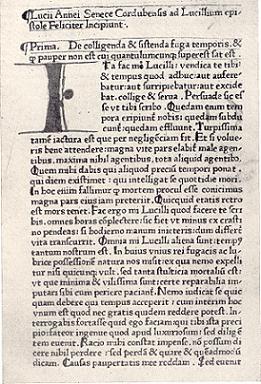 Lucii Annei Senece Cordubensis ad Lucillum epi
stole Feliciter Incipiunt.
Prima. De colligenda & sistenda fuga temporis. &
q pauper non est cui quantulumcunq superest sat est.
Ita fac mi Lucilli: vendica te tibi:
& tempus quod adhuc aut aufere
batur: aut surripiebatur: aut excide
bat. collige & serua. Persuade sic es
se vt tibi scribo. Quedam enim tem
pora eripiunt nobis: quedam subdu
cunt: quedam effluunt. Turpissima
tamē iactura est que per negligēciam fit. Et si volue
ris bene attendere: magna vite pars elabit male agen
tibus. maxima nihil agentibus. tota aliquid agentibo.
Quem mihi dabis qui aliquod preciū tempori ponat.
qui diem existimet: qui intelligat se quottidie mori.
In hoc enim fallimur q mortem
magna pars eius iam preteriit. Quicquid etatis retro
est mors tenet. Fac ergo mi Lucilli quod facere te scri
bis. omnes horas cōplectere: sic fiet vt minus ex crasti
no pendeas: si hodierno manum inieceris: dum differt
vita transcurrit. Omnia mi Lucilli aliena sunt: temp
tantum nostrum est. In huius vnius rei fugacis ac lu
brice possessionē natura nos misit: ex qua nemo expelli
tur nisi quicunq vult. sed tanta stulticia mortaliū est:
vt que minima & vilissima sunt: certe reparabilia im
putari sibi cum perierc paciant. Nemo iudicat se quic
quam debere qui tempus acceperit: cum interim hoc
vnum est quod nec gratis quidem reddere potest. In
terrogabis fortasse quid ego faciam: qui tibi ista preci
pio: fatebor ingenue quod apud luxuriosum: sed diligē
tem euenit. Racio mihi constat impense. nō possum di
cere nihil perdere: sed perdā & quare & quēadmodū
dicam. Causas paupertatis mee reddam. Sed euenit